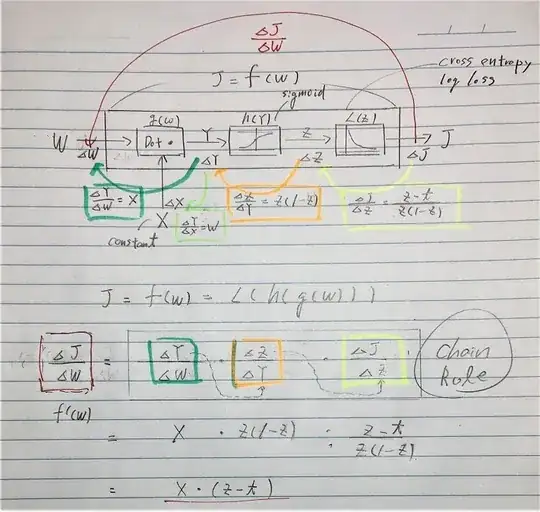 ΔJ
ΔW
J = f(w)
cross entropy
log loss
g(w)
h(Y)
sigmoid
L(z)
W
ΔW
Dot •
Y
ΔY
Z
ΔZ
J
ΔJ
ΔY/ΔW = X
ΔX
X
constant
ΔY/ΔX = W
ΔZ/ΔY = z(1-z)
ΔJ/ΔZ = z-t/z(1-z)
J = f(w) = L(h(g(w)))
ΔJ/ΔW = ΔY/ΔW · ΔZ/ΔY · ΔJ/ΔZ
Chain
Role
f'(w)
= X · z(1-z) · z-t/z(1-z)
= X · (z-t)